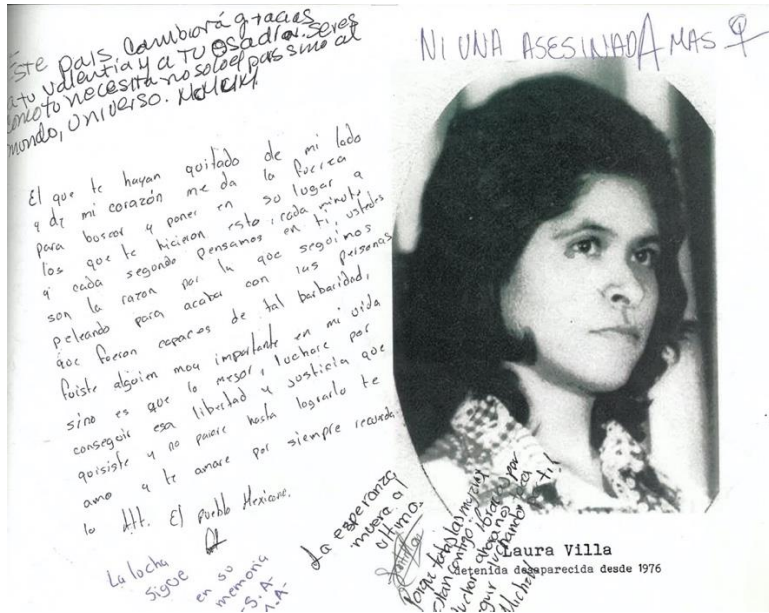 Este país cambiorá gracias
a tu valentía y a tu osadía. Seres
como tu necesita no solo el pais sino al
mundo, universo.
NI UNA ASESINADA MAS ♀
El que te hayan quitado de mi lado
y de mi corazón me da la fuerza
para buscar y poner en su lugar a
los que te hicieron esto, cada minuto
y cada segundo pensamos en ti, ustedes
son la razon por la que seguimos
peleando para acabar con las personas
que fueron capaces de tal barbaridad,
fuiste alguien muy importante en mi vida
sino es que lo mejor, luchare por
conseguir esa libertad y justicia que
quisiste y no parare hasta lograrlo te
amo y te amare por siempre recuerda-
lo Att. El pueblo Mexicano.
La lucha
sigue
en su
memoria
-S.A-
La esperanza
muera al
ultimo.
Porque todas las mujeres
estan contigo
luchar
Michel
Laura Villa
detenida desaparecida desde 1976